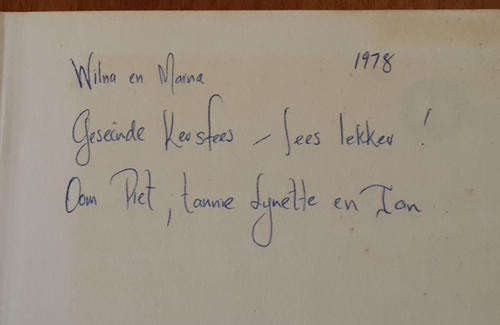 1978
Wilna en Marna
Geseënde Kersfees - Lees lekker!
Oom Piet, tannie Lynette en Ian